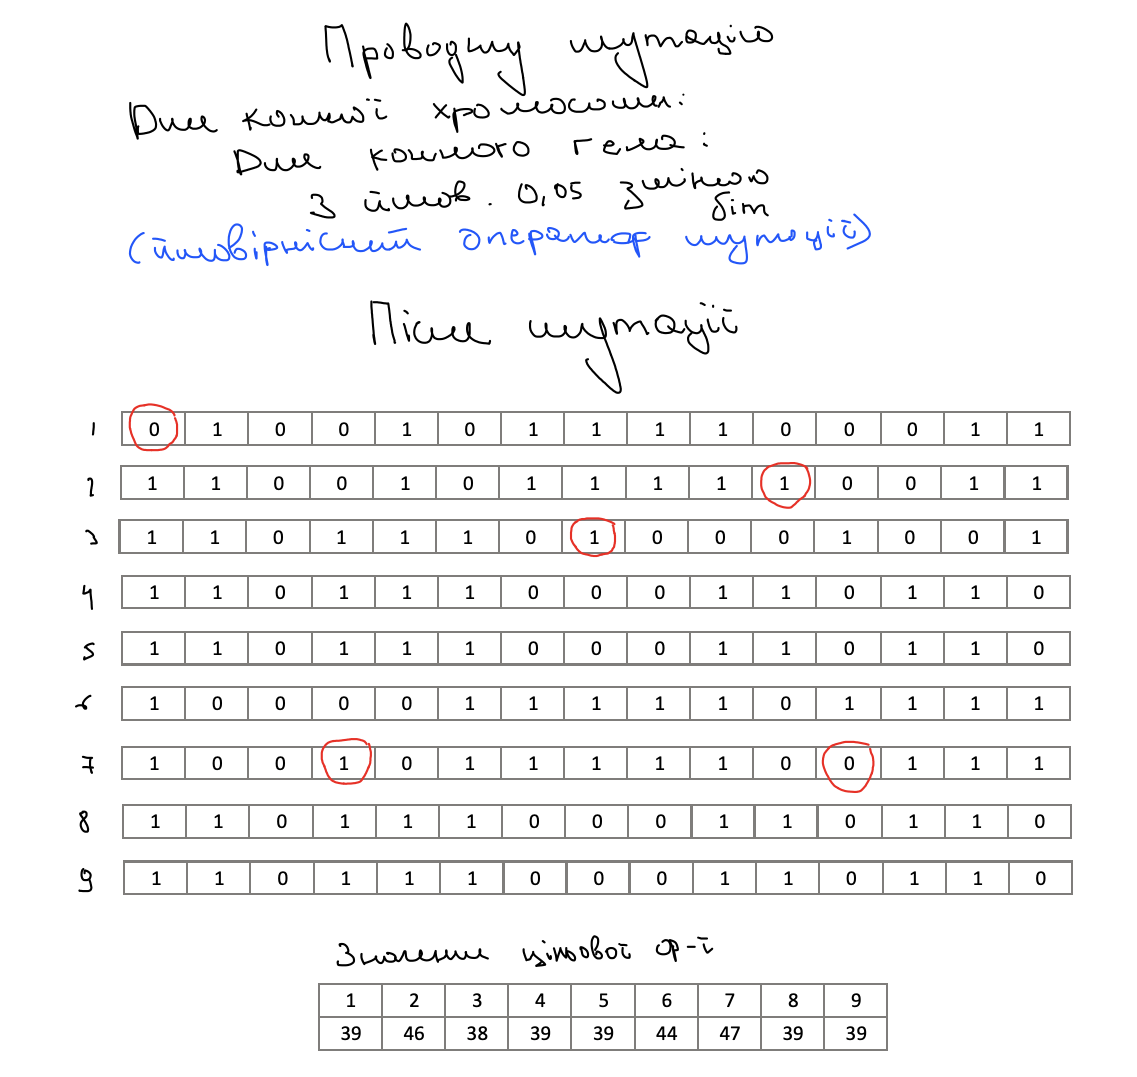 Проводжу мутацію
Для кожної хромосоми:
Для кожного гена:
З ймов. 0,05 змінюю
біт
(ймовірнісний оператор мутації)
Після мутації
1 0 1 0 0 1 0 1 1 1 1 0 0 0 1 1
2 1 1 0 0 1 0 1 1 1 1 1 0 0 1 1
3 1 1 0 1 1 1 0 1 0 0 0 1 0 0 1
4 1 1 0 1 1 1 0 0 0 1 1 0 1 1 0
5 1 1 0 1 1 1 0 0 0 1 1 0 1 1 0
6 1 0 0 0 0 1 1 1 1 1 0 1 1 1 1
7 1 0 0 1 0 1 1 1 1 1 0 0 1 1 1
8 1 1 0 1 1 1 0 0 0 1 1 0 1 1 0
9 1 1 0 1 1 1 0 0 0 1 1 0 1 1 0
Значення цільової ф-ї
1 2 3 4 5 6 7 8 9
39 46 38 39 39 44 47 39 39